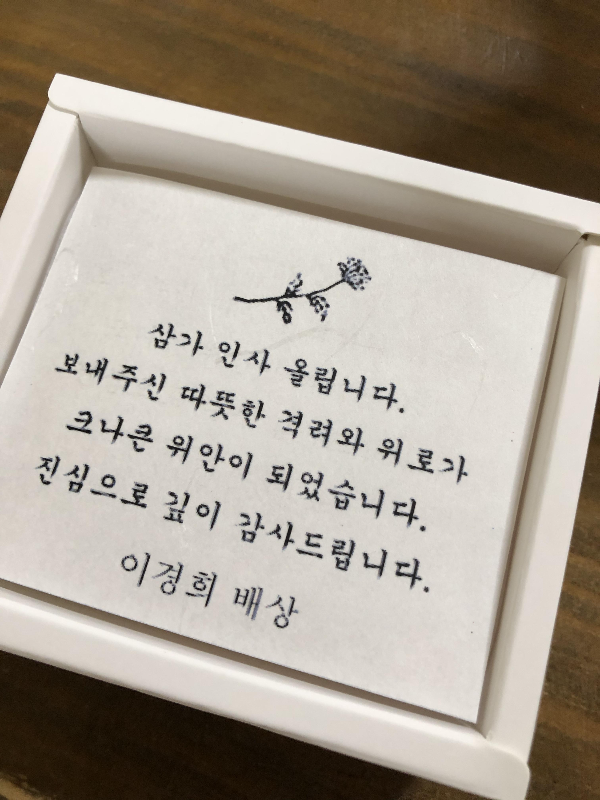 삼가 인사 올립니다.
보내주신 따뜻한 격려와 위로가
크나큰 위안이 되었습니다.
진심으로 깊이 감사드립니다.
이경희 배상